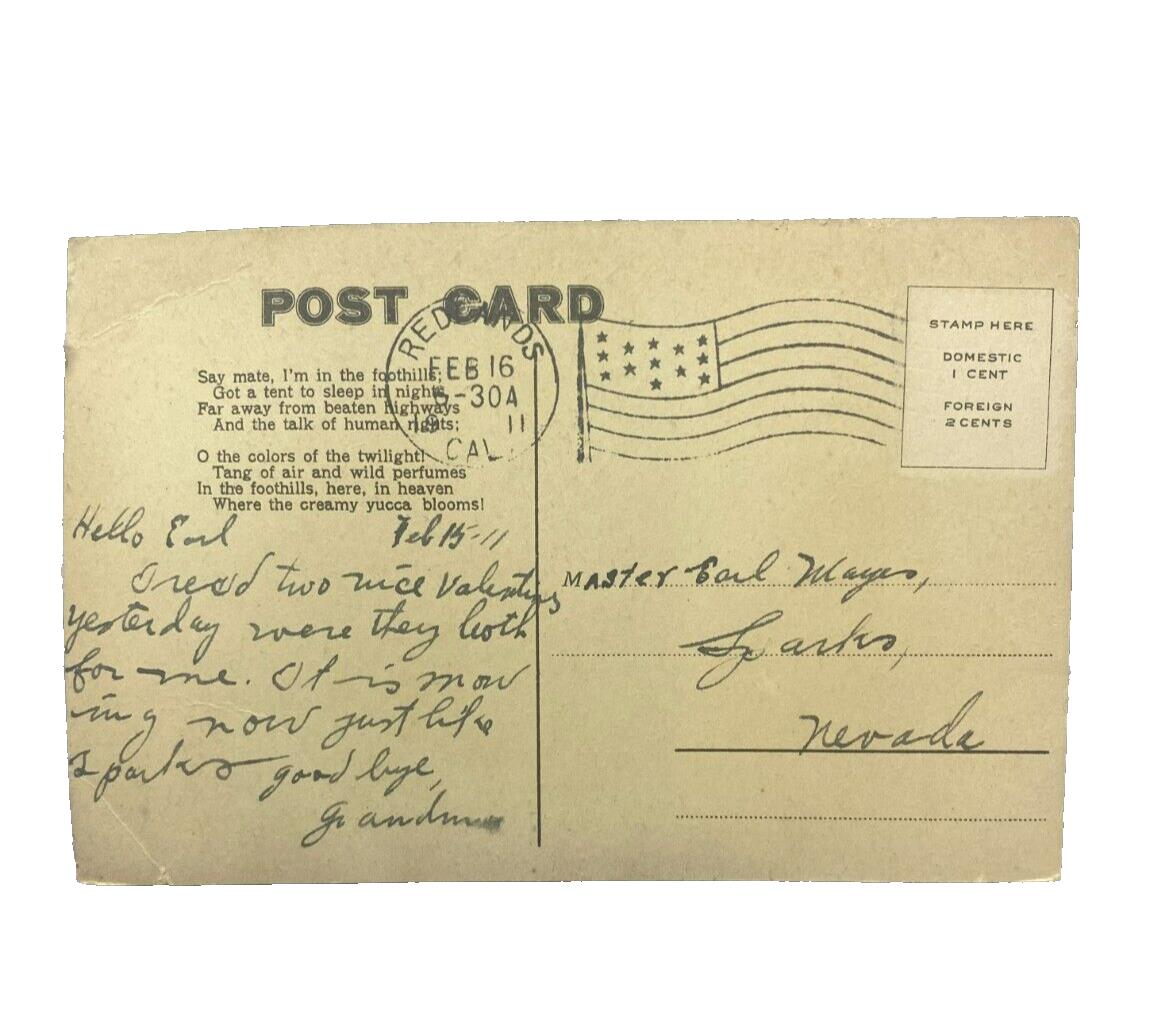 POST CARD
REDLANDS
FEB 16
5-30A
19 11
CAL.
STAMP HERE
DOMESTIC
1 CENT
FOREIGN
2 CENTS
Say mate, I'm in the foothills;
Got a tent to sleep in nights,
Far away from beaten highways
And the talk of human rights;
O the colors of the twilight!
Tang of air and wild perfumes
In the foothills, here, in heaven
Where the creamy yucca blooms!
Hello Earl Feb 15-11
I rec'd two nice Valentines
yesterday were they both
for me. It is snow
ing now just like
Sparks good bye,
Grandma
Master Earl Mayes,
Sparks,
Nevada